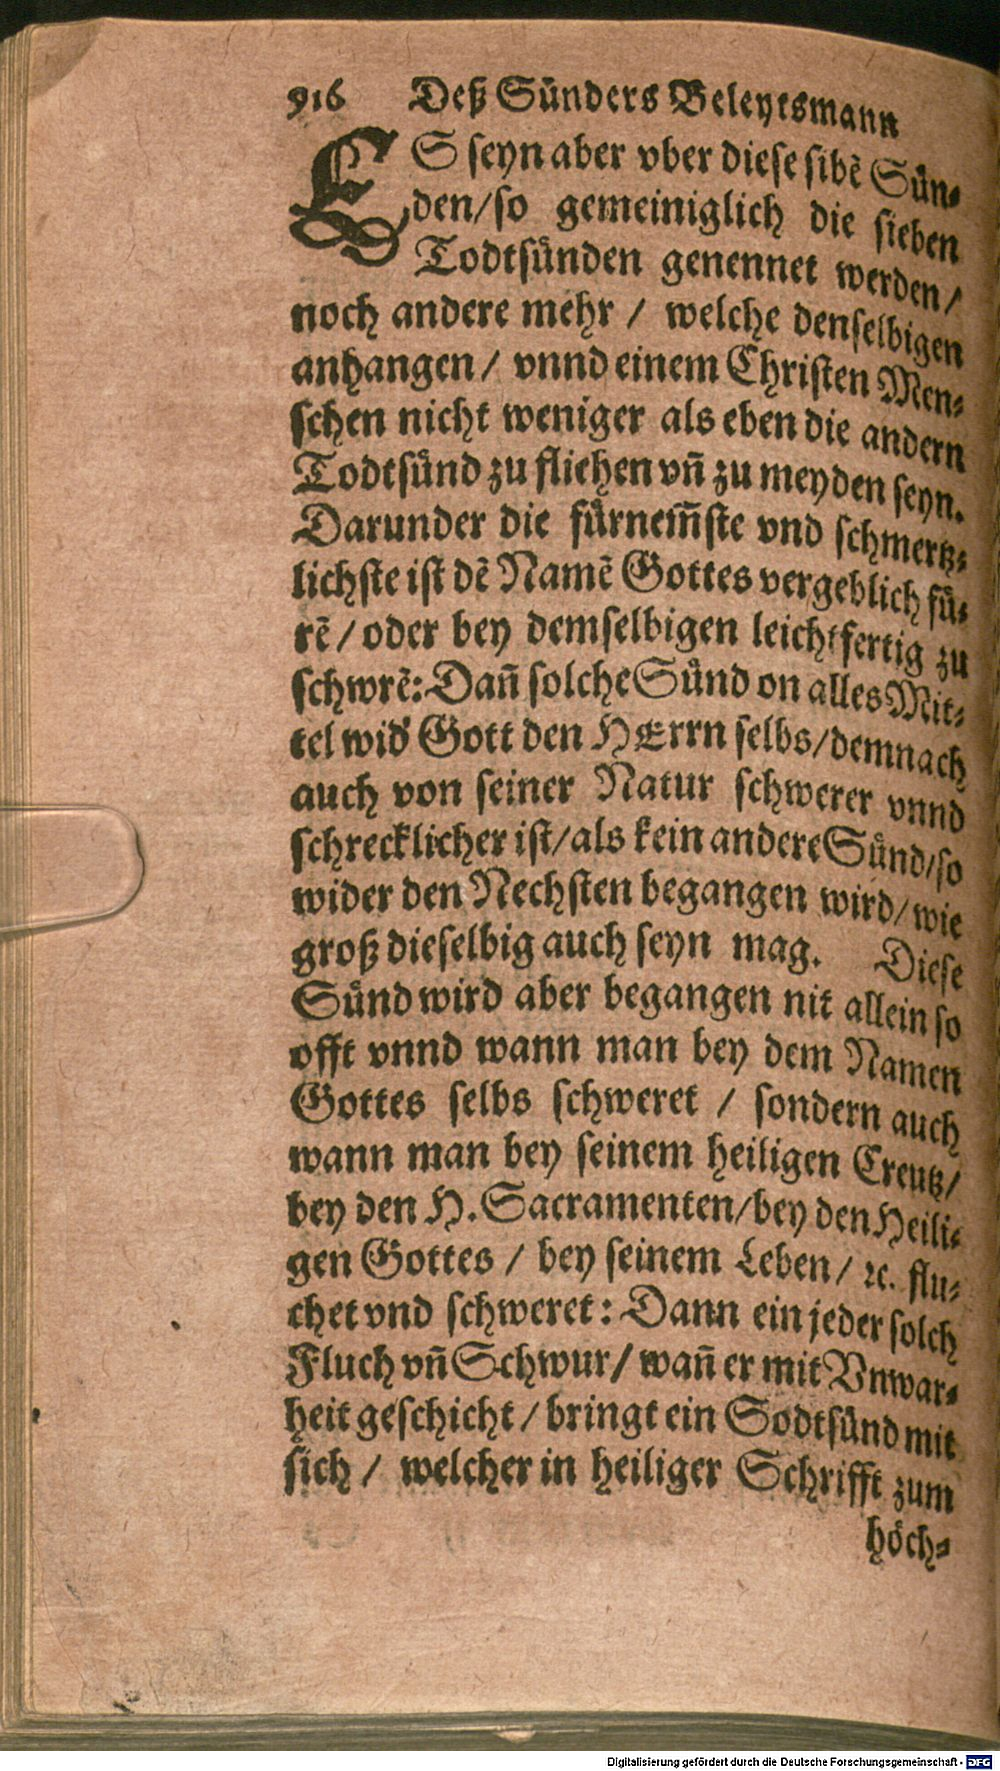 916 Deß Sünders Beleytsmann
ES seyn aber vber diese sibẽ Sün⸗
den/so gemeiniglich die sieben
Todtsünden genennet werden/
noch andere mehr / welche denselbigen
anhangen / vnnd einem Christen Men⸗
schen nicht weniger als eben die andern
Todtsünd zu fliehen vñ zu meyden seyn.
Darunder die fürnem̃ste vnd schmertz⸗
lichste ist dẽ Namẽ Gottes vergeblich fü⸗
rẽ / oder bey demselbigen leichtfertig zu
schwrẽ: Dañ solche Sünd on alles Mit⸗
tel wid' Gott den HErrn selbs/demnach
auch von seiner Natur schwerer vnnd
schrecklicher ist/als kein andere Sünd/so
wider den Nechsten begangen wird/wie
groß dieselbig auch seyn mag. Diese
Sünd wird aber begangen nit allein so
offt vnnd wann man bey dem Namen
Gottes selbs schweret / sondern auch
wann man bey seinem heiligen Creutz/
bey den H. Sacramenten/bey den Heili⸗
gen Gottes / bey seinem Leben/ ꝛc. flu⸗
chet vnd schweret: Dann ein jeder solch
Fluch vñ Schwur/ wañ er mit Vnwar⸗
heit geschicht / bringt ein Sodtsünd mit
sich / welcher in heiliger Schrifft zum
höch⸗
Digitalisierung gefördert durch die Deutsche Forschungsgemeinschaft - DFG